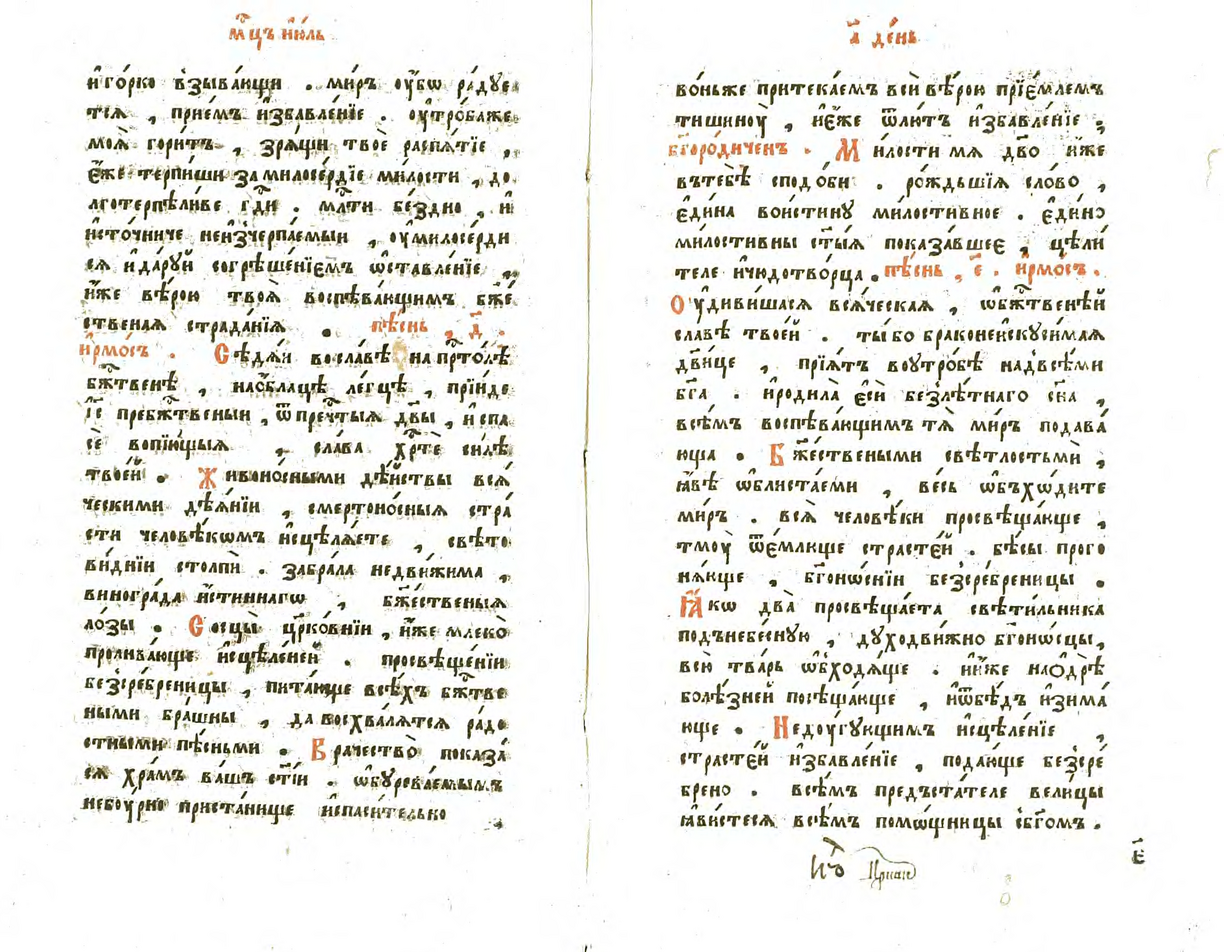 мⷭ҇цъ і҆ю́ль
и҆го́рко взыва́ющи . ми́ръ ᲂу҆́бѡ ра́дуе
тсѧ , прїе́мъ и҆збавле́нїе . ᲂу҆тро́баже
моѧ̀ гори́тъ , зрѧ́щи твоѐ распѧ́тїе ,
є҆́же терпи́ши замилосе́рдїе ми́лости , до
лготерпѣ́ливе гдⷭ҇и . млⷭ҇ти бе́здно , и҆
и҆сто́чниче неизче́рпаемыи , ᲂу҆милосе́рди
сѧ и҆да́руй согрѣше́нїемъ ѡ҆ставле́нїе ,
и҆́же вѣ́рою твоѧ̀ воспѣва́ющимъ бж҃е́
ственаѧ страда́нїѧ . пѣ́снь , д҃ .
і҆рмо́съ . Сѣдѧ́и вославѣ̀ напрⷭ҇то́лѣ
бжⷭ҇твенѣ , наѻ҆́блацѣ ле́гцѣ , прїи́де
і҆с҃ пребжⷭ҇твеныи , ѿпречⷭ҇тыѧ дв҃ы , и҆спа
сѐ вопїю́щыѧ , сла́ва хрⷭ҇тѐ си́лѣ
твое́й . Живоно́сными дѣ́йствы всѧ́
ческими дѣѧ́нїи , смертоно́сныѧ стра́
сти человѣ́кѡмъ и҆сцѣлѧ́ете , свѣто
ви́днїи столпѝ . забра́ла недви́жима ,
виногра́да и҆́стиннагѡ , бж҃е́ственыѧ
ло́зы . Сосцы̀ цр҃ко́внїи , и҆́же млеко̀
пролива́юще и҆сцѣле́ней . просвѣще́нїи
безсре́бреницы , пита́юще всѣ́хъ бжⷭ҇тве
ными бра́шны , да восхва́лѧтсѧ ра́до
стными пѣ́сньми . Врачество̀ показа́
сѧ хра́мъ ва́шъ ст҃і́и . ѡ҆бурева́емымъ
небᲂу́рно приста́нище и҆спаси́телько
а҃ де́нь
во́ньже притека́емъ всѝ вѣ́рою прїе́млемъ
тишинᲂу̀ , и҆є҆́же ѿлю́тъ и҆збавле́нїе ;
бг҃оро́диченъ . Ми́лости мѧ дв҃о и҆́же
втебѣ̀ сподо́би . ро́ждьшїѧ сло́во ,
є҆ди́на вои́стину ми́лостивное . є҆ди́но
ми́лостивны ст҃ы́ѧ показа́вшее , цѣли́
теле и҆чюдотво́рца . пѣ́снь , є҃ . і҆рмо́съ .
Оу҆диви́шасѧ всѧ́ческаѧ , ѡ҆бжⷭ҇твенѣ́й
сла́вѣ твое́й . ты́ бо браконеиску́симаѧ
дв҃и́це , прїѧ́тъ воутро́бѣ надвсѣ́ми
бг҃а . и҆родила̀ є҆сѝ безлѣ́тнаго сн҃а ,
всѣ́мъ воспѣва́ющимъ тѧ̀ ми́ръ подава́
юща . Бж҃е́ствеными свѣ́тлостьми ,
ꙗ҆́вѣ ѡ҆блиста́еми , ве́сь ѡ҆бъхѡ́дите
ми́ръ . всѧ̀ человѣ́ки просвѣща́юще ,
тмᲂу̀ ѿе́млюще страсте́й . бѣ́сы прого
нѧ́юще , бг҃оно́снїи безсре́бреницы .
Ꙗ҆́кѡ два̀ просвѣща́ета свѣти́льника
подънебе́сную , духодви́жно бг҃оно́сцы ,
всю̀ тва́рь ѡ҆бходѧ́ще . и҆и҆́же наѻ҆дрѣ̀
болѣ́зней посѣща́юще , и҆ѿбѣ́дъ и҆зима́
юще . Недᲂу́гующимъ и҆сцѣле́нїе ,
страсте́й и҆збавле́нїе , подаю́ще безсре́
брено . всѣ́мъ предъста́теле вели́цы
ꙗ҆ви́стесѧ всѣ́мъ помо́щницы сбг҃омъ .
є҃